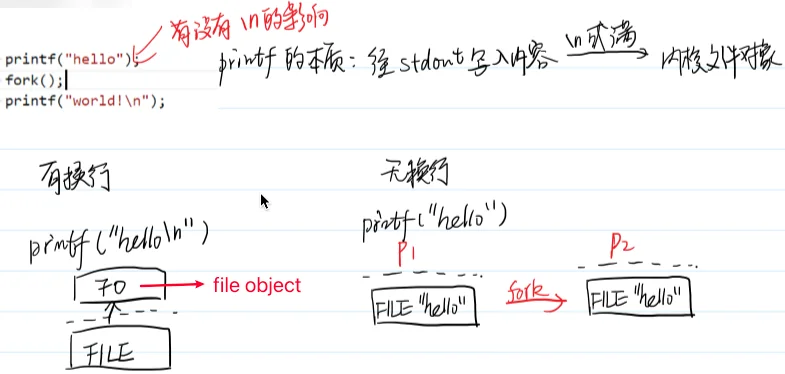 有没有 \n的影响
printf("hello");
fork();
printf("world!\n");
printf 的本质：往 stdout 写入内容 \n或满 内核文件对象
有换行
无换行
printf("hello\n")
printf("hello")
P1
P2
FO file object
FILE
FILE "hello"
fork
FILE "hello"